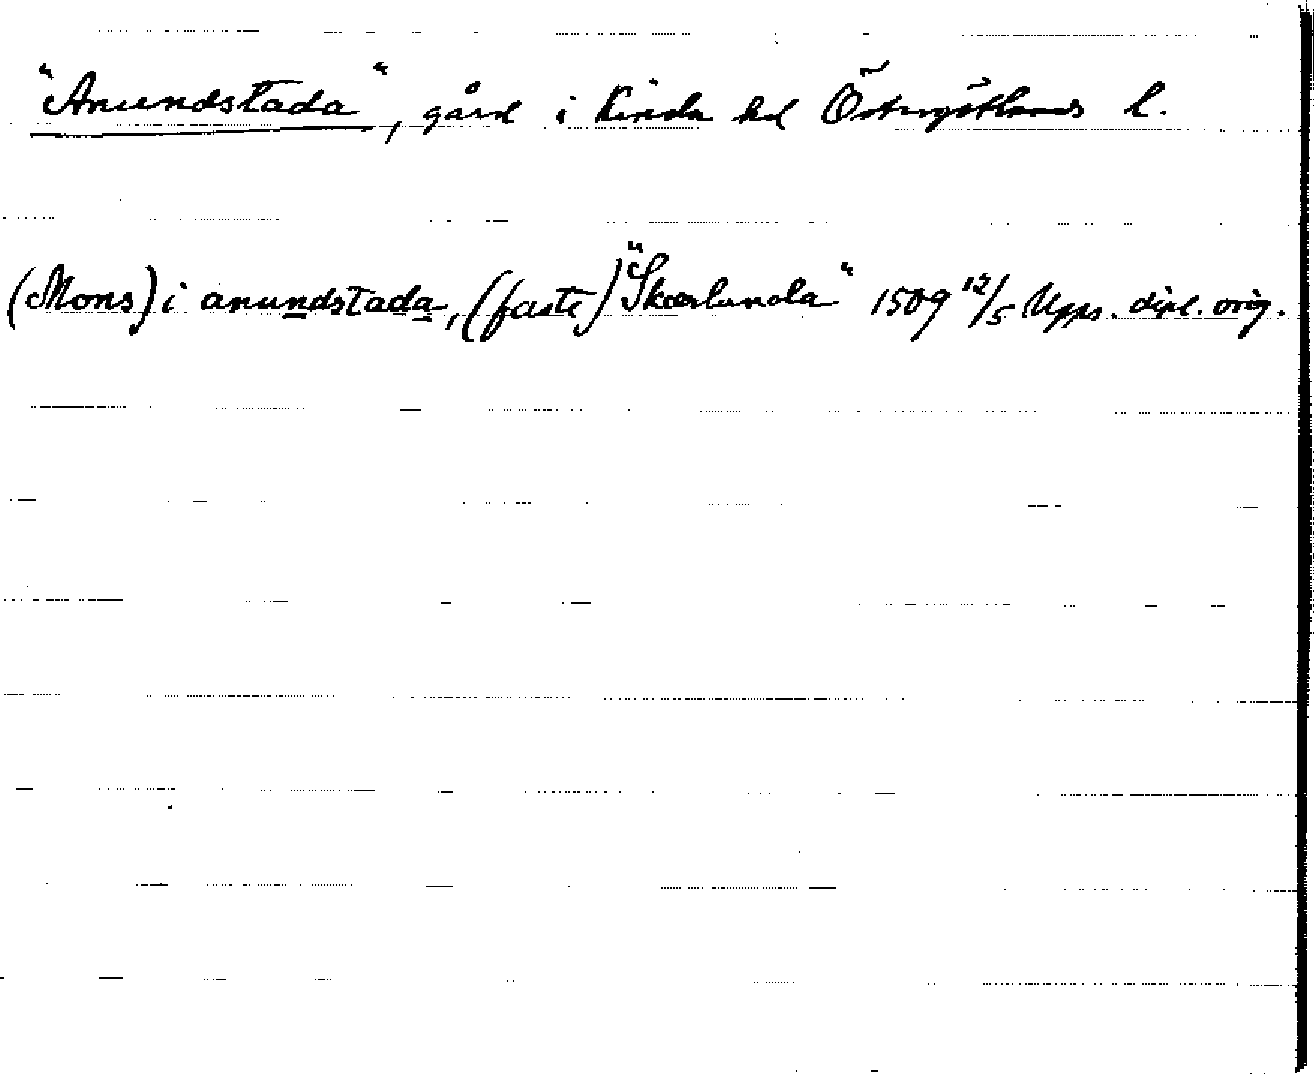 "Anundstada", gård i Kinda hd Östergötlands l.
(Mons) i anundstada, (faste) "Skærlunda" 1509 12/5 Upps. dipl. orig.